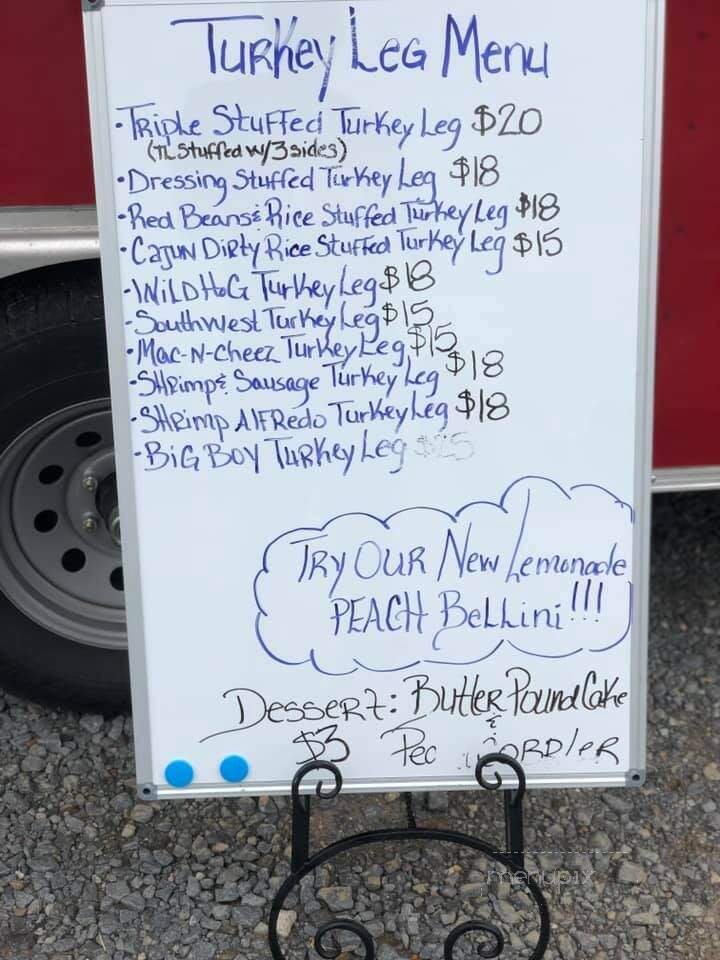 Turkey Leg Menu
·Triple Stuffed Turkey Leg $20
(TL Stuffed w/3 sides)
·Dressing Stuffed Turkey Leg $18
·Red Beans & Rice Stuffed Turkey Leg $18
·Cajun Dirty Rice Stuffed Turkey Leg $15
·Wild HoG Turkey Leg $18
·Southwest Turkey Leg $15
·Mac-N-Cheez Turkey Leg $15
·SHRimp & Sausage Turkey Leg $18
·SHRimp AlFRedo Turkey Leg $18
·BiG Boy Turkey Leg
TRY OUR New Lemonade
PEACH Bellini!!!
Dessert: Butter Pound Cake
&
$3
menupix